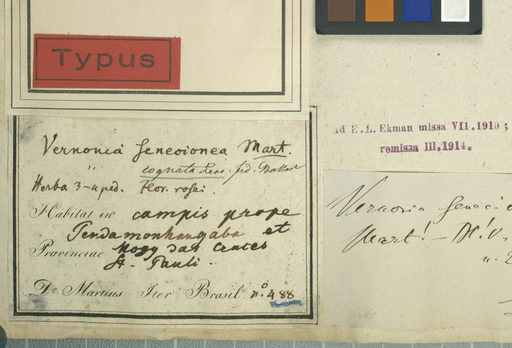 Typus
Vernonia senecionea Mart.
cognata Less. fid. Baker
Herba 3-4 ped. Flor. rosei.
Habitat in campis prope
Pendamonhangaba et
Provinciae Mogy das Cruces
St. Pauli.
Dr. Martius Iter Brasil. n.º 488
ad E. L. Ekman missa VII. 1910 ;
remissa III. 1914.
Vernonia
Mart!